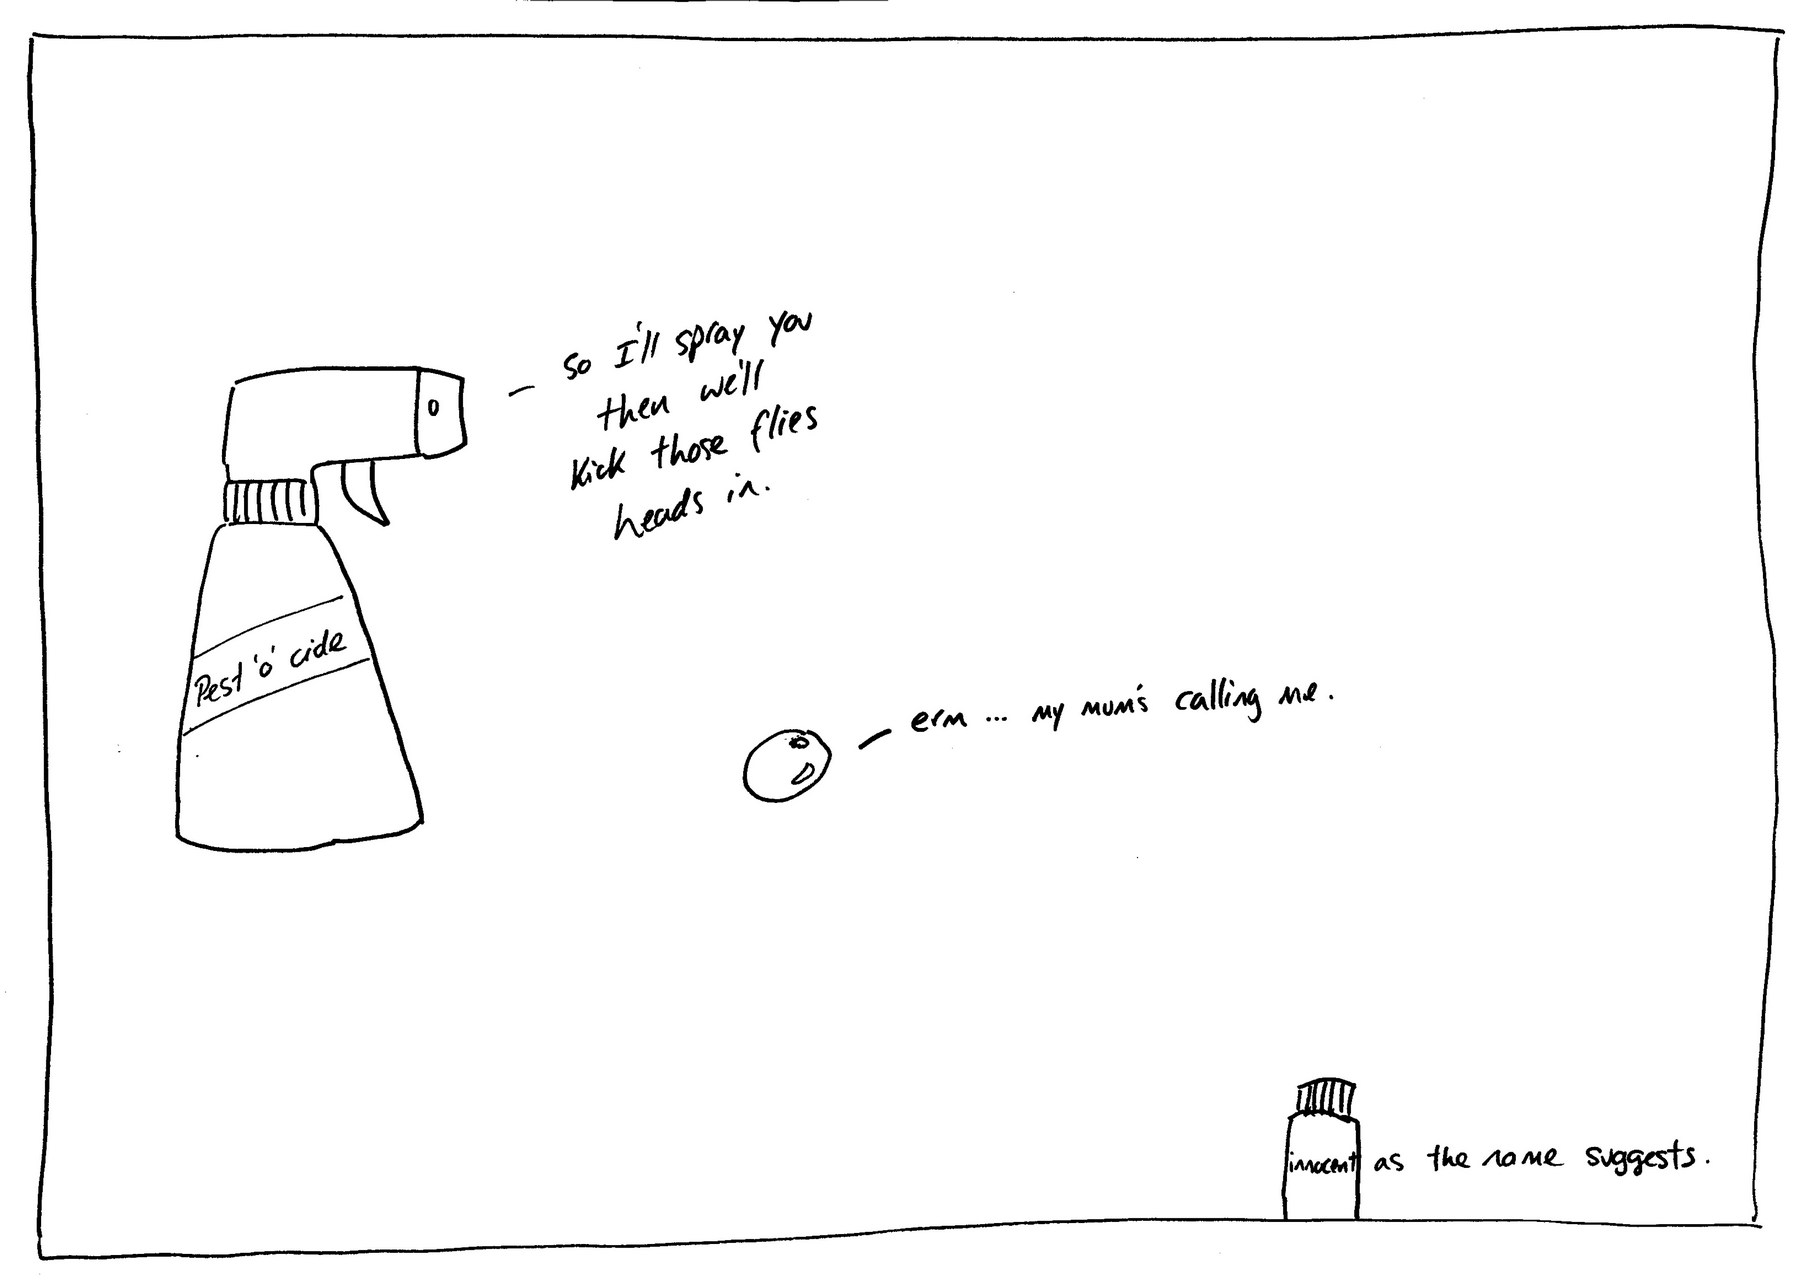 so I'll spray you
then we'll
kick those flies
heads in.
Pest 'o' cide
erm ... my mum's calling me.
innocent as the name suggests.